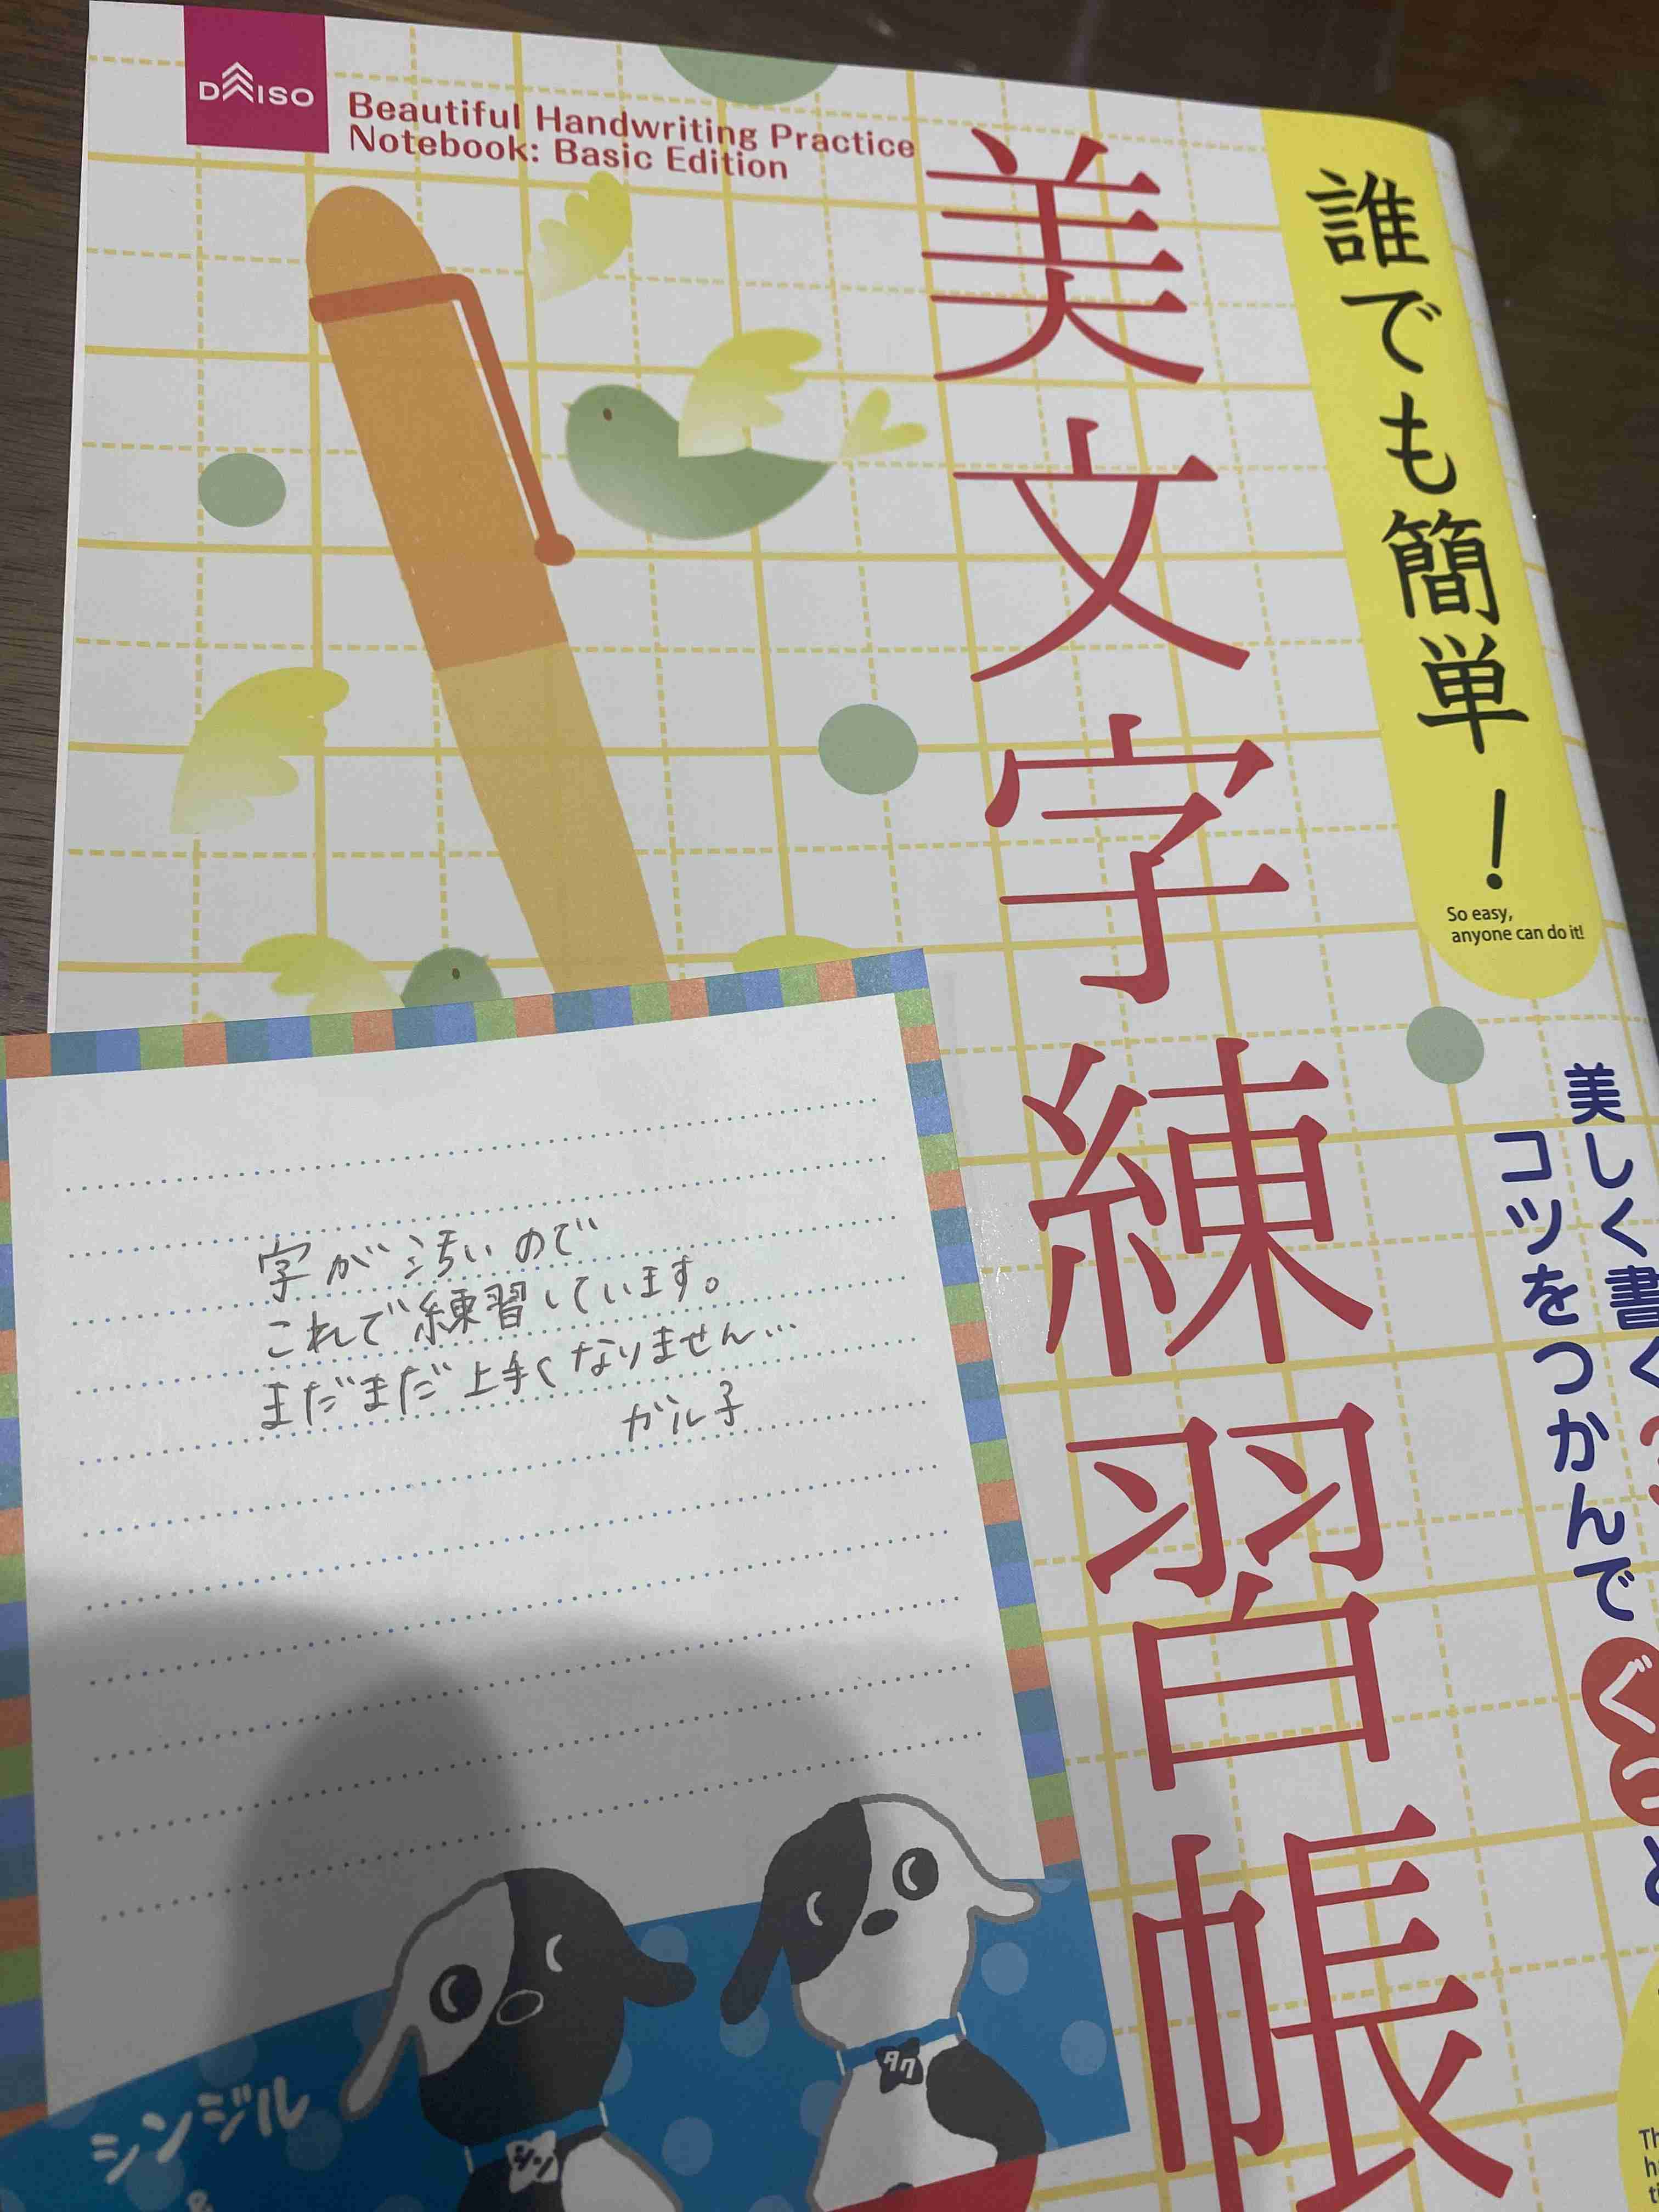 DAISO
Beautiful Handwriting Practice
Notebook: Basic Edition
誰でも簡単!
So easy,
anyone can do it!
美文字練習帳
美しく書く
コツをつかんで
ぐっと
字が汚いので
これで練習しています。
まだまだ上手くなりません…
ガル子
シンジル
&
シン
タク